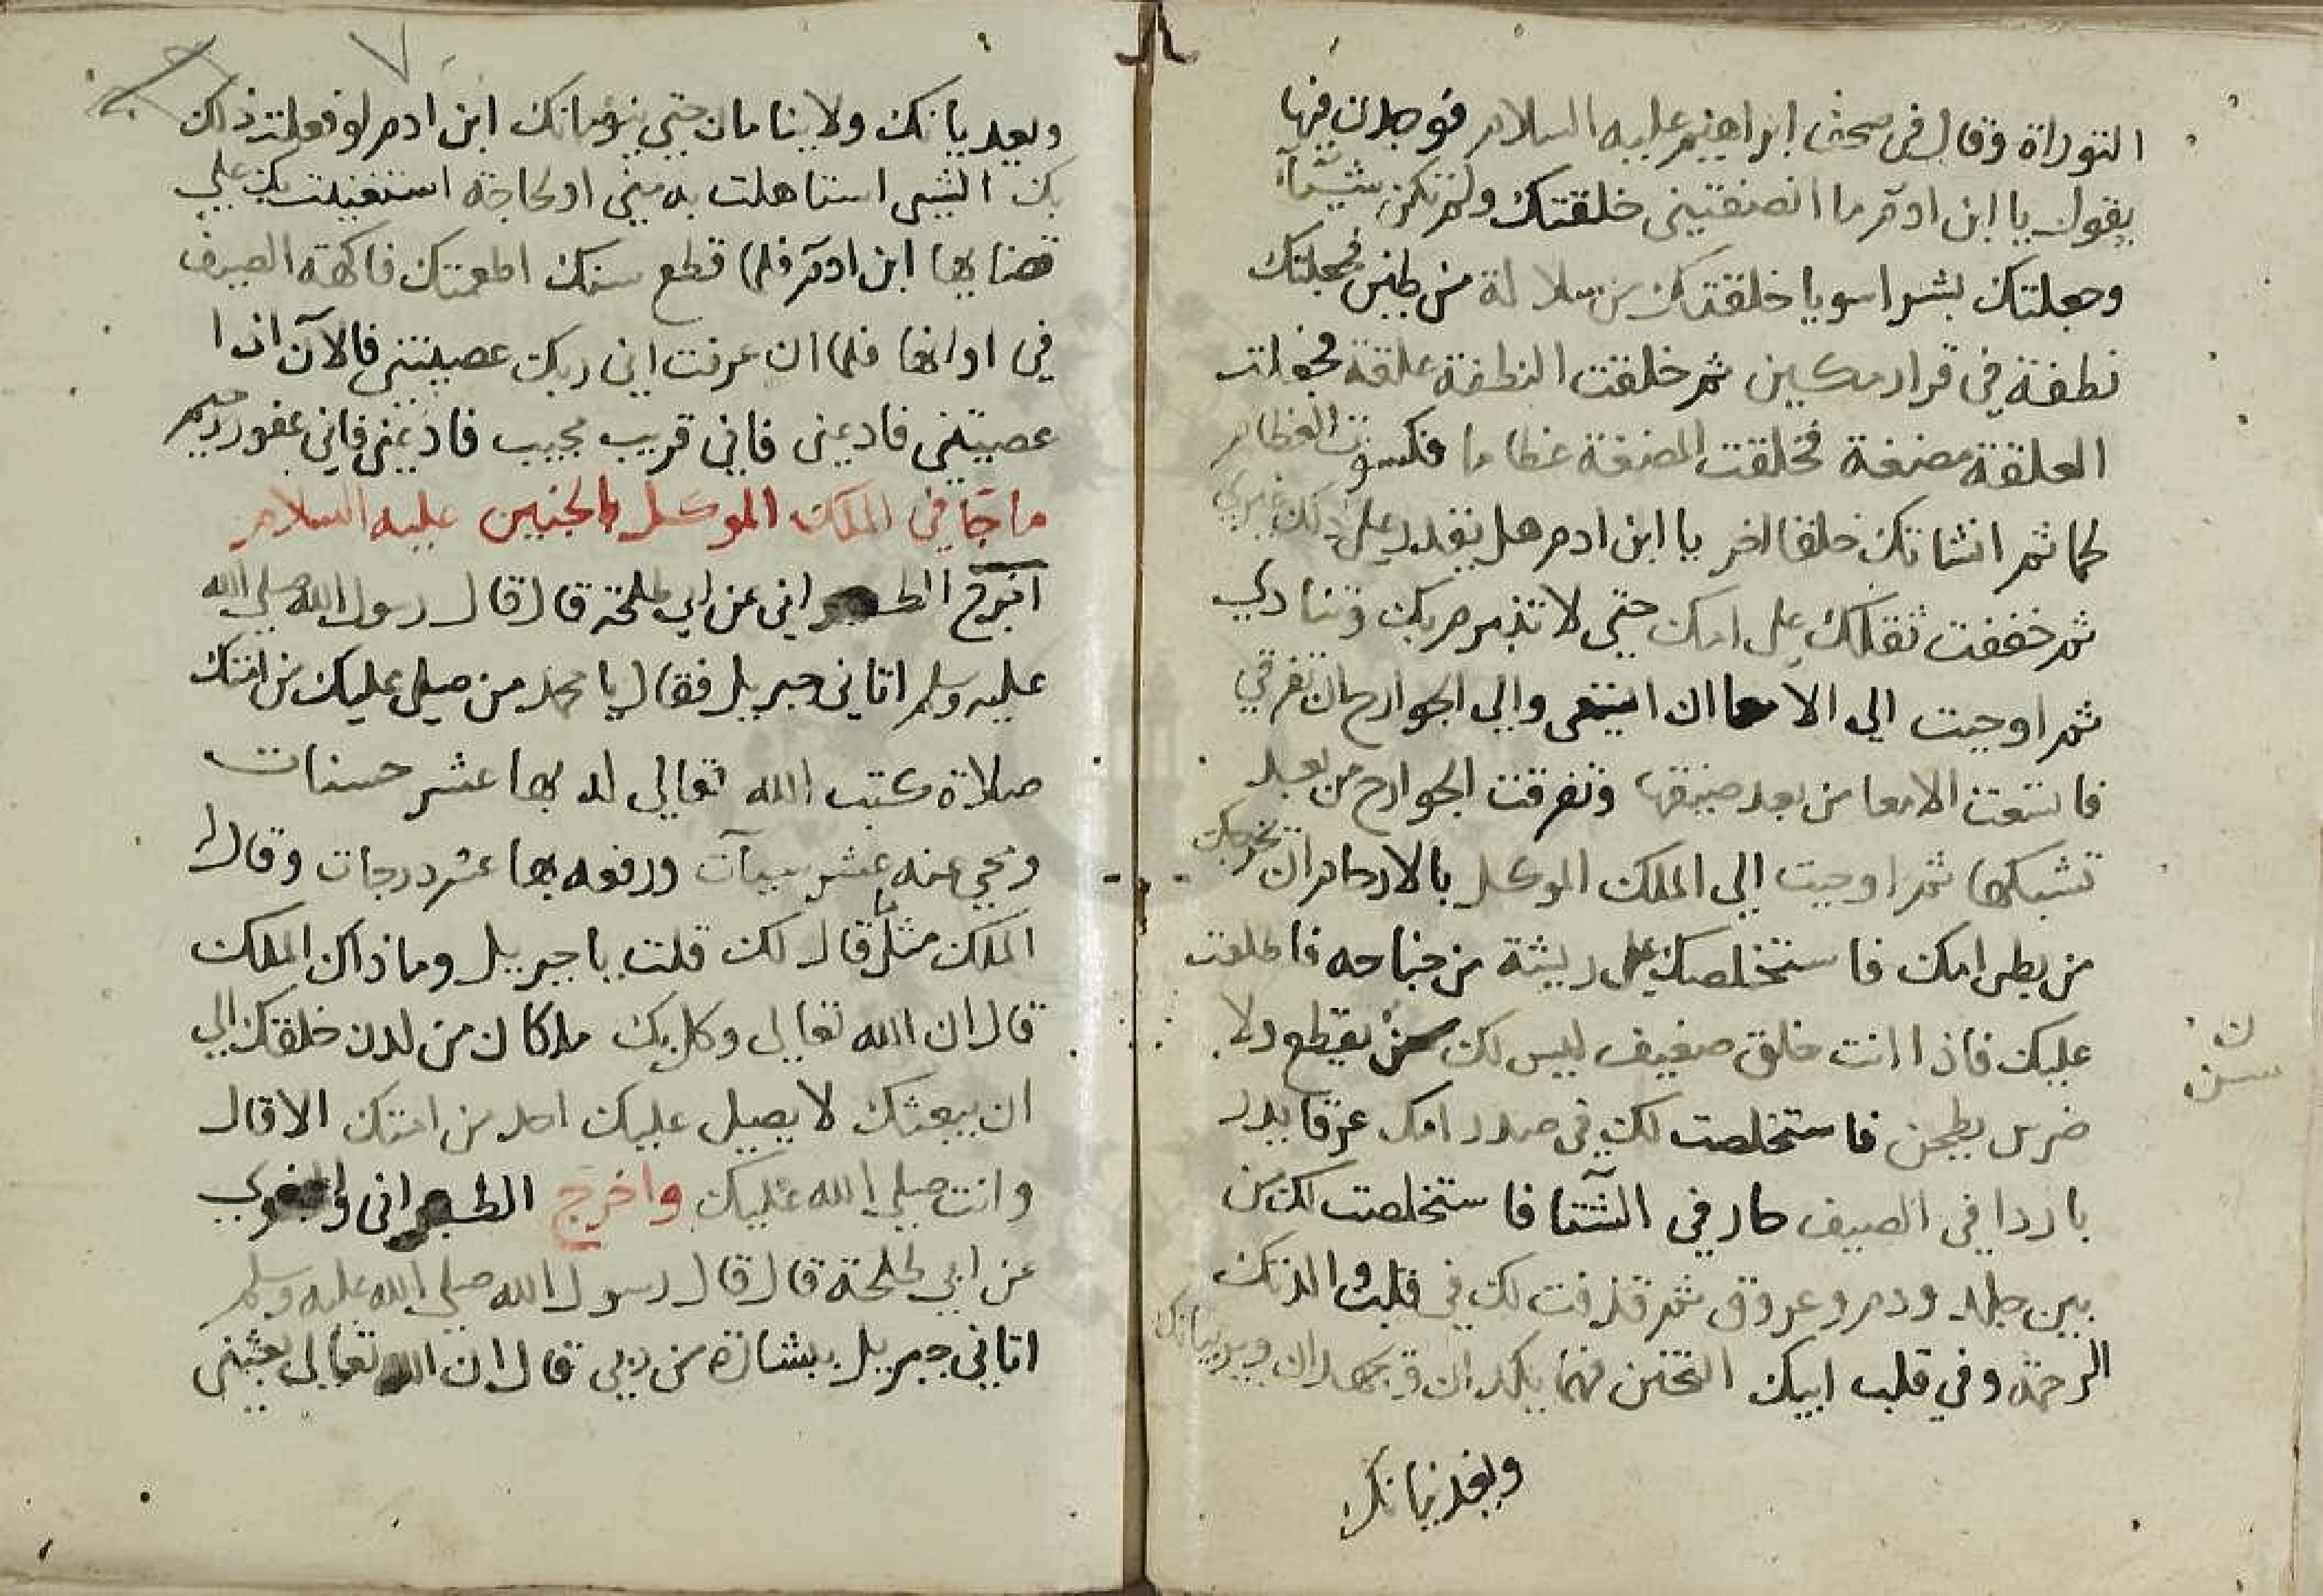 التوراة وقال في صحف ابراهيم عليه السلام فوجدت فيها
يقول يا ابن ادم ما انصفتني خلقتك ولم تكن شيئا
وجعلتك بشرا سويا خلقتك من سلالة من طين فجعلتك
نطفة في قرار مكين ثم خلقت النطفة علقة فخلقت
العلقة مضغة فخلقت المضغة عظاما فكسوت العظام
لحما ثم انشاتك خلقا اخر يا ابن ادم هل يقدر على ذلك غيري
ثم خففت ثقلك على امك حتى لا تبرم بك وتتاذي
ثم اوحيت الي الامعا ان اتسعي والي الجوارح ان تفرقي
فاتسعت الامعا من بعد ضيقها وتفرقت الجوارح من بعد
تشبكها ثم اوحيت الي الملك الموكل بالارحام ان يخرجك
من بطن امك فاستخلصك على ريشة من جناحه فاطلعت
عليك فاذا انت خلق ضعيف ليس لك سن يقطع ولا
ضرس يطحن فاستخلصت لك في صدر امك عرقا يدر
باردا في الصيف حار في الشتا فاستخلصت لك من
بين جلد ودم وعروق ثم قذفت لك في قلب والدتك
الرحمة وفي قلب ابيك التحنن فهما يكدان ويجهدان ويربيانك
ويغديانك
ن
سن
ويغديانك ولا يناما حتي ينومانك ابن ادم لو فعلت ذلك
بك الشي استاهلت به مني او لحاجة استغنيت بك علي
قضايها ابن ادم فلما قطع سنك اطعمتك فاكهة الصيف
في اوانها فلما ان عرفت اني ربك عصيتني فالآن اذا
عصيتني فادعني فاني قريب مجيب فادعني فاني غفور رحيم
ما جا في الملك الموكل بالجنين عليه السلام
اخرج الطبراني عن ابي طلحة قال قال رسول الله صلي الله
عليه وسلم اتاني جبريل فقال يا محمد من صلى عليك من امتك
صلاة كتب الله تعالي له بها عشر حسنات
ومحي عنه عشر سيآت ورفعه بها عشر درجات وقال له
الملك مثل ما قال لك قلت يا جبريل وما ذاك الملك
قال ان الله تعالى وكل بك ملكا من لدن خلقتك الي
ان يبعثك لا يصلي عليك احد من امتك الا قال
وانت صلي الله عليك واخرج الطبراني
عن ابي طلحة قال قال رسول الله صلي الله عليه وسلم
اتاني جبريل ببشارة من ربي قال ان الله تعالى بعثني